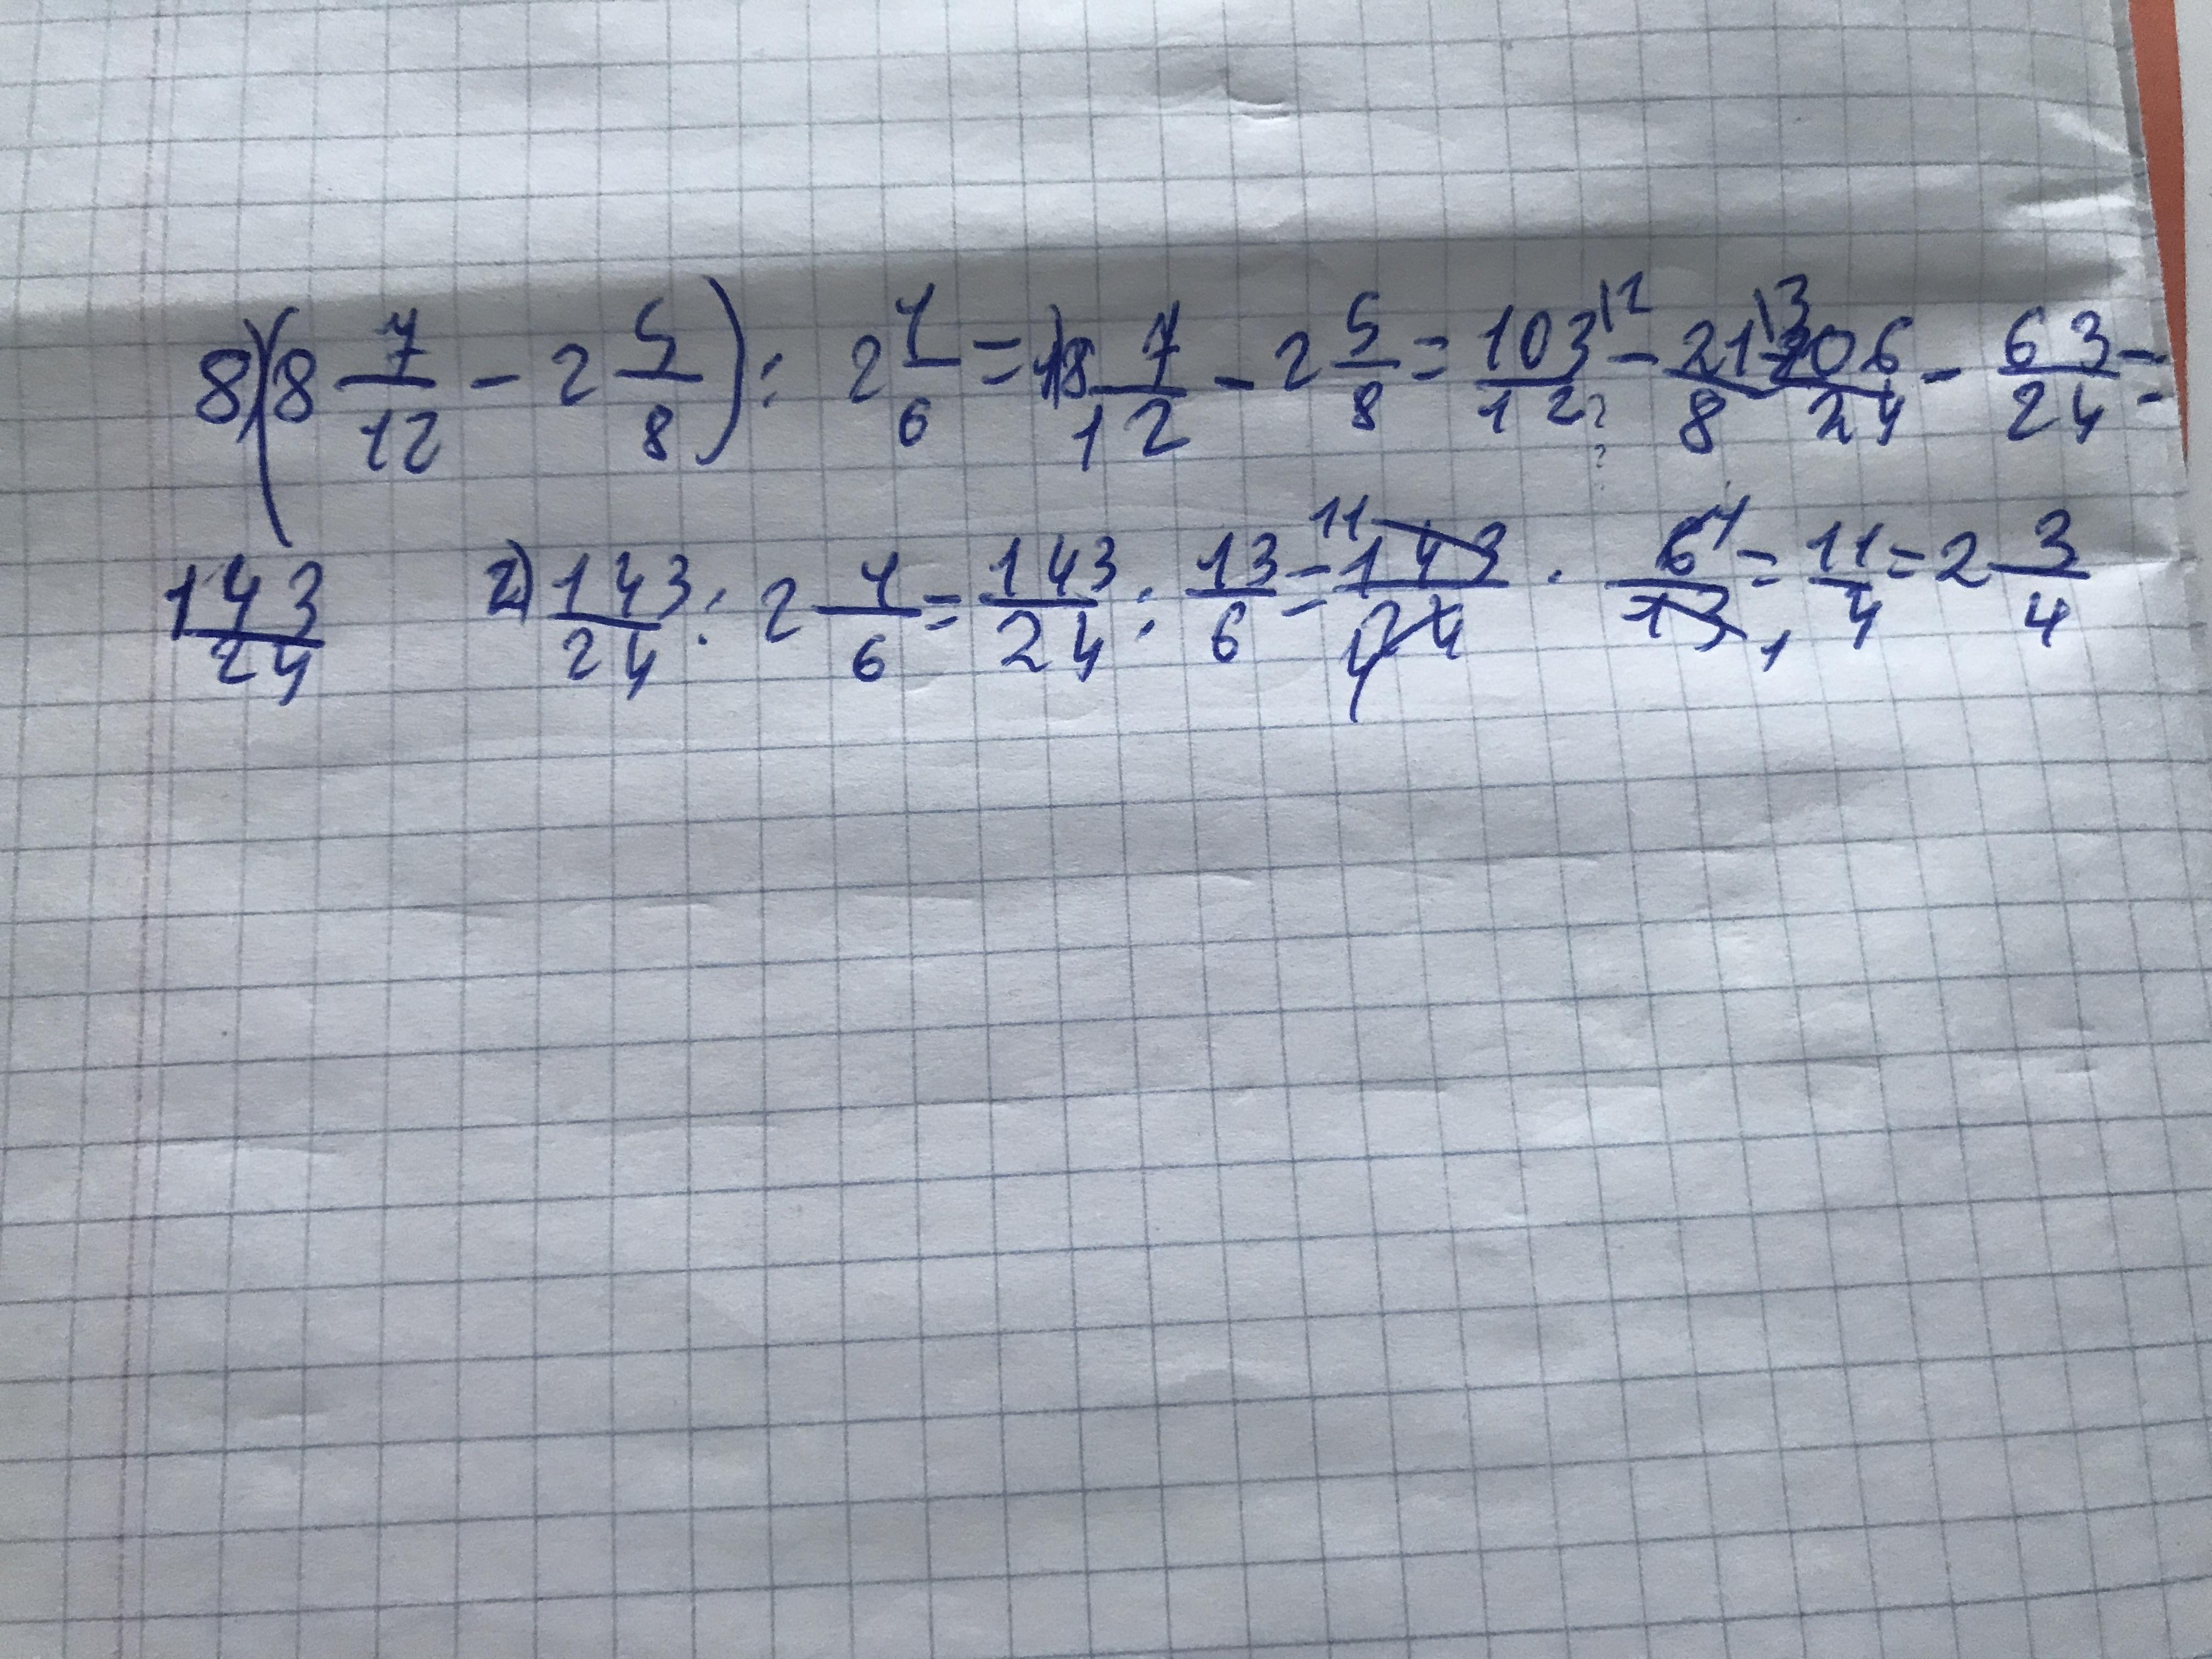 8) (8 7/12 - 2 5/8) : 2 1/6 = 1) 8 7/12 - 2 5/8 = 103/12 \2 - 21/8 \3 = 206/24 - 63/24 =
143/24 2) 143/24 : 2 1/6 = 143/24 : 13/6 = 11 143/24 4 · 6 1/13 1 = 11/4 = 2 3/4